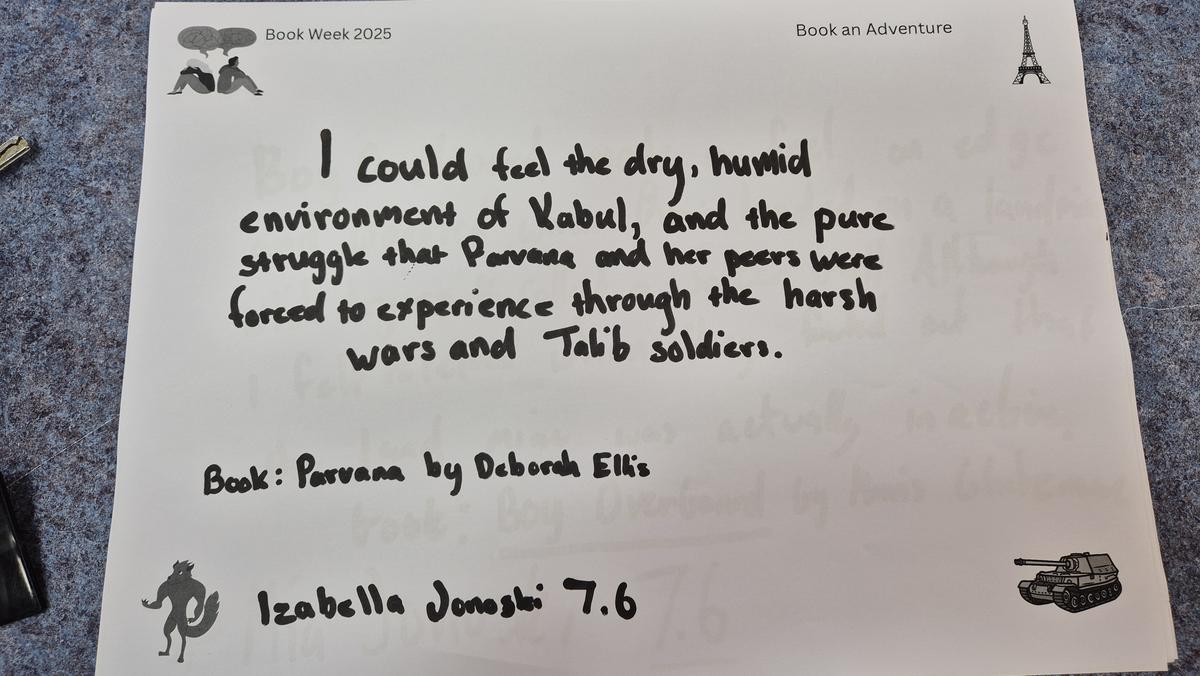 Book Week 2025
Book an Adventure
I could feel the dry, humid
environment of Kabul, and the pure
struggle that Parvana and her peers were
forced to experience through the harsh
wars and Talib soldiers.
Book: Parvana by Deborah Ellis
Izabella Jonoski 7.6